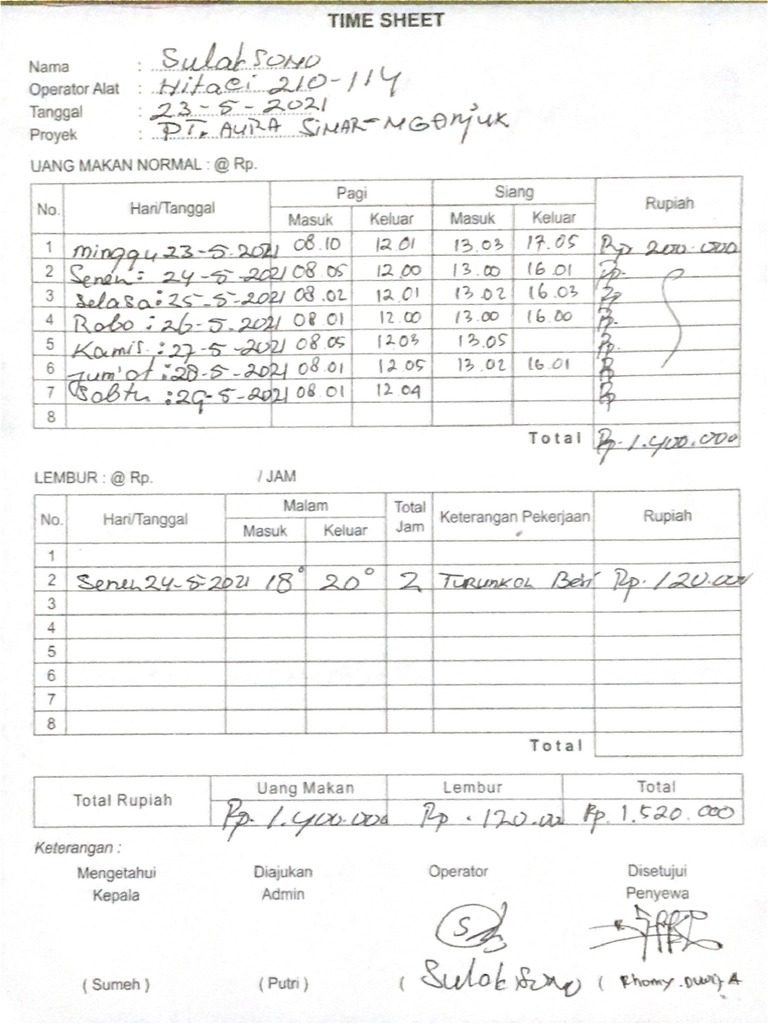 TIME SHEET
Nama : Sulaksono
Operator Alat : Hitaci 210-114
Tanggal : 23-5-2021
Proyek : PT. AURA SINAR-NGANJUK
UANG MAKAN NORMAL : @ Rp.
No. Hari/Tanggal Pagi Siang Rupiah
Masuk Keluar Masuk Keluar
1 minggu 23-5.2021 08.10 12.01 13.03 17.05 Rp 200.000
2 Senen : 24-5-2021 08 05 12.00 13.00 16.01 Rp.
3 Selasa : 25-5-2021 08.02 12.01 13.02 16.03 Rp
4 Rabo : 26-5-2021 08 01 12.00 13.00 16.00 Rp.
5 Kamis. : 27-5-2021 08.05 1203 13.05 Rp.
6 Jum'at : 28-5-2021 08.01 12 05 13.02 16.01 Rp
7 Sabtu : 29-5-2021 08.01 12 04 Rp
8
Total Rp. 1.400.000
LEMBUR : @ Rp. / JAM
No. Hari/Tanggal Malam Total Jam Keterangan Pekerjaan Rupiah
Masuk Keluar
1
2 Senen 24-5-2021 18° 20° 2 Turunkan Besi Rp. 120.000
3
4
5
6
7
8
Total
Total Rupiah Uang Makan Lembur Total
Rp. 1.400.000 Rp. 120.00 Rp. 1.520.000
Keterangan :
Mengetahui Diajukan Operator Disetujui
Kepala Admin Penyewa
( Sumeh ) ( Putri ) ( Sulaksono ( Rhomy. Dwi. A